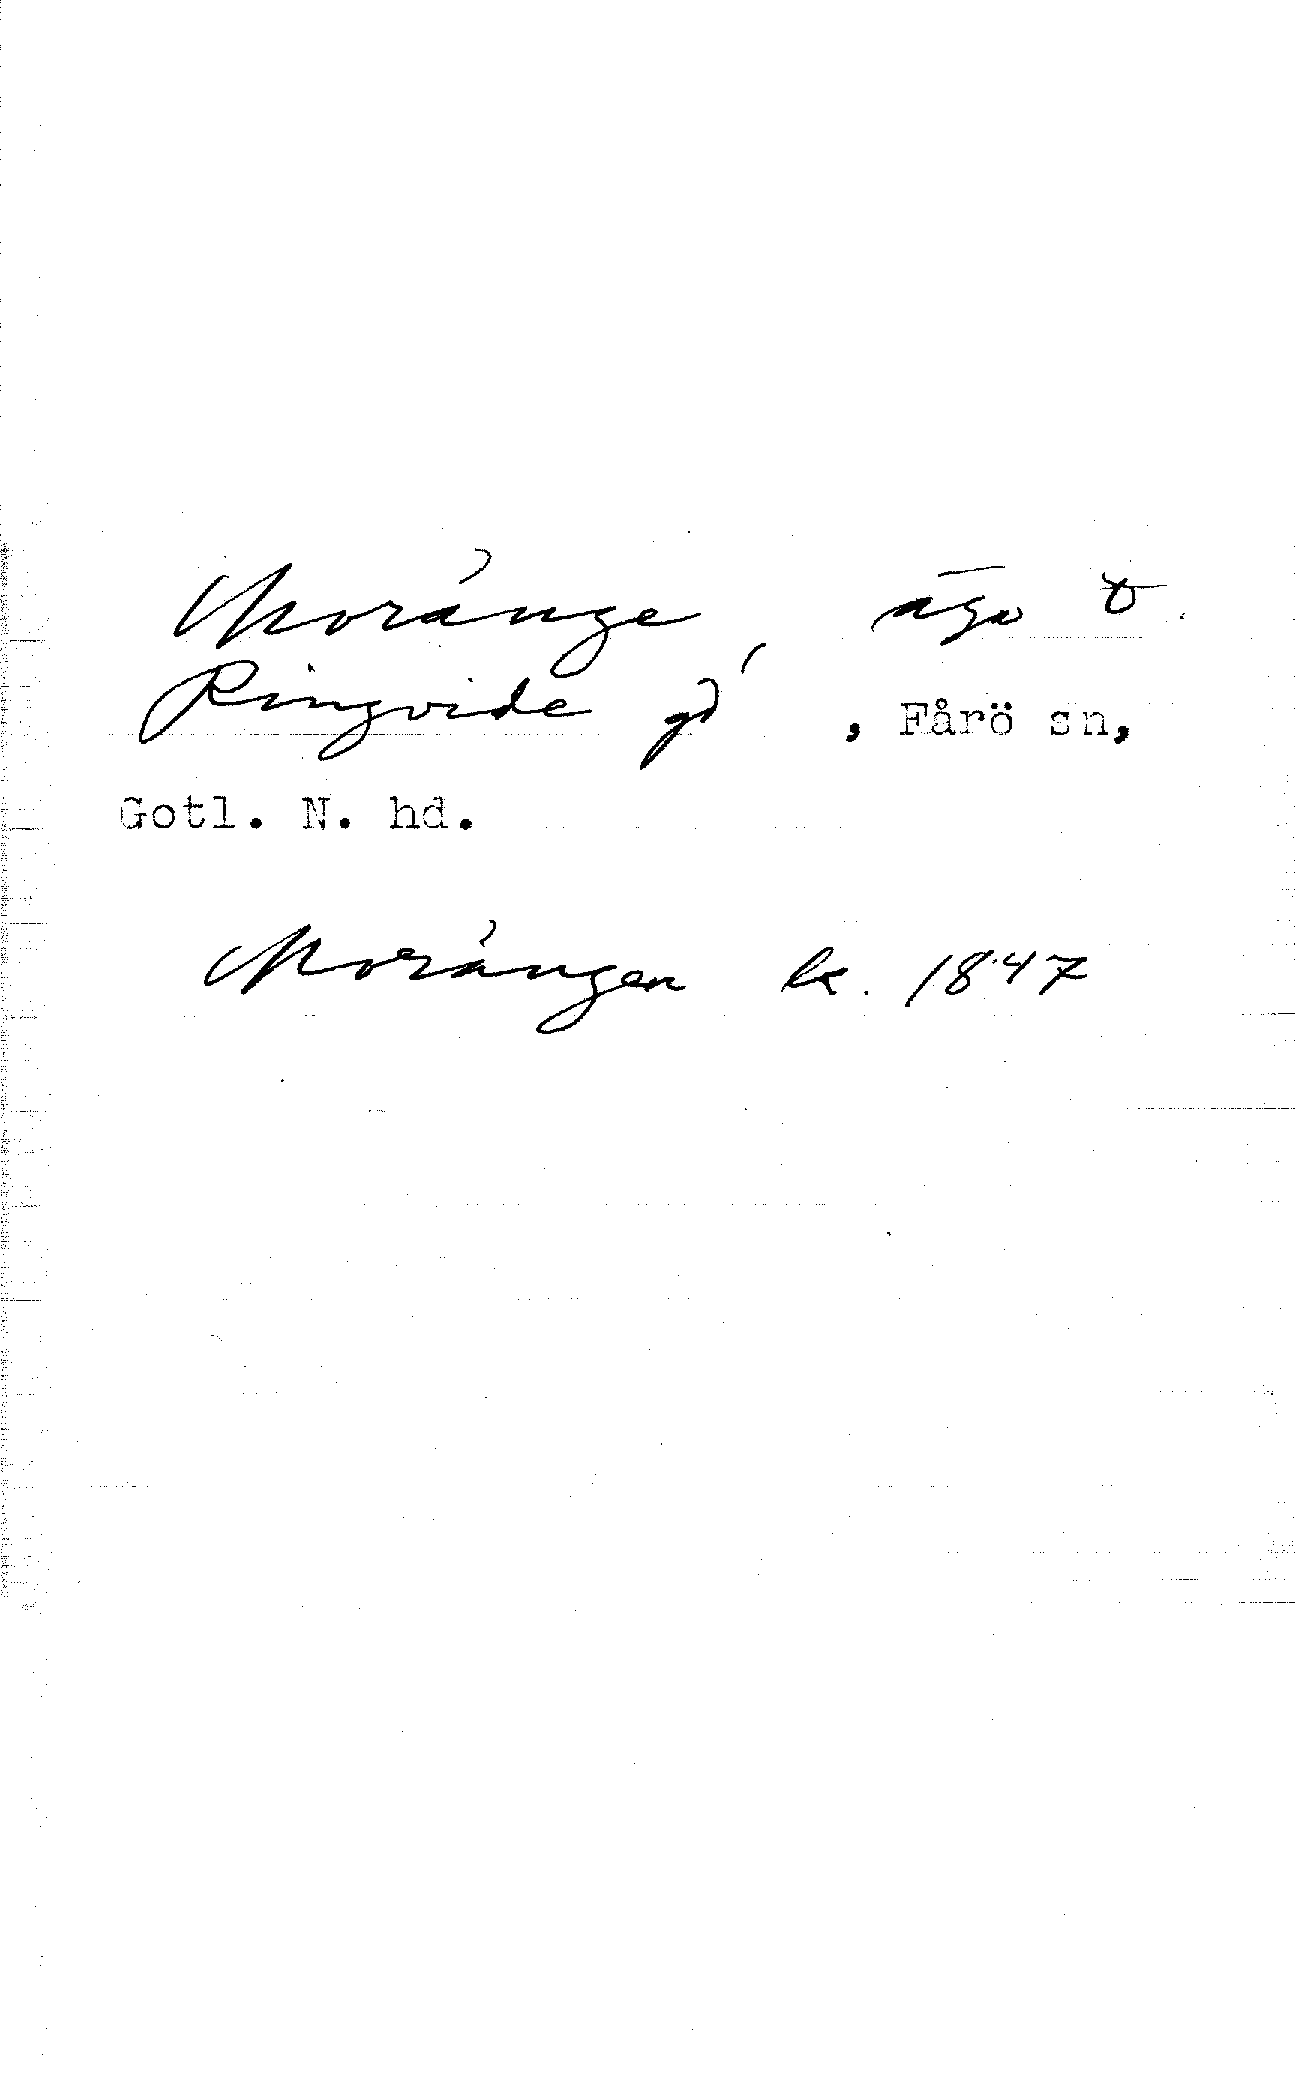 Moränge, äga t.
Ringvide gd, Fårö sn,
Gotl. N. hd.
Morängen lk. 1847